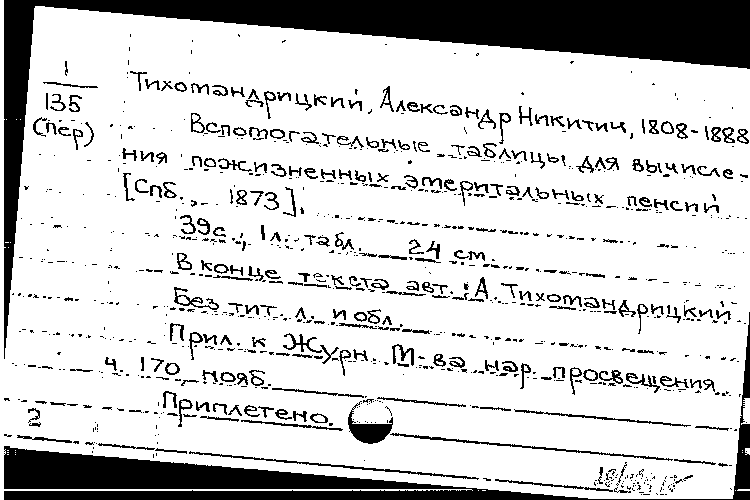 1
135
(пер)
Тихомандрицкий, Александр Никитич, 1808-1888
Вспомогательные таблицы для вычисле-
ния пожизненных эмеритальных пенсий
[Спб., 1873].
39с., 1л. табл. 24 см.
В конце текста авт.: А. Тихомандрицкий
Без тит. л. и обл.
Прил. к Журн. М-ва нар. просвещения
ч. 170, нояб.
Приплетено.
2